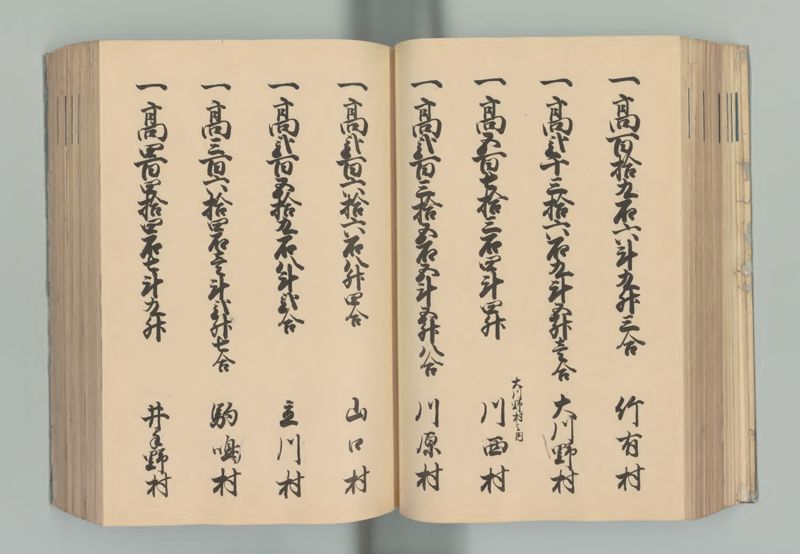 一高百拾九石六斗九升三合 竹有村
一高弐千三拾六石九斗五升壱合 大川野村
大川野村之内
一高五百七拾三石四斗四升 川西村
一高弐百三拾五石五斗五升八合 川原村
一高弐百六拾六石八升四合 山口村
一高弐百五拾九石八斗弐合 立川村
一高三百六拾四石壱斗弐升七合 駒鳴村
一高四百四拾四石七斗九升 井手野村